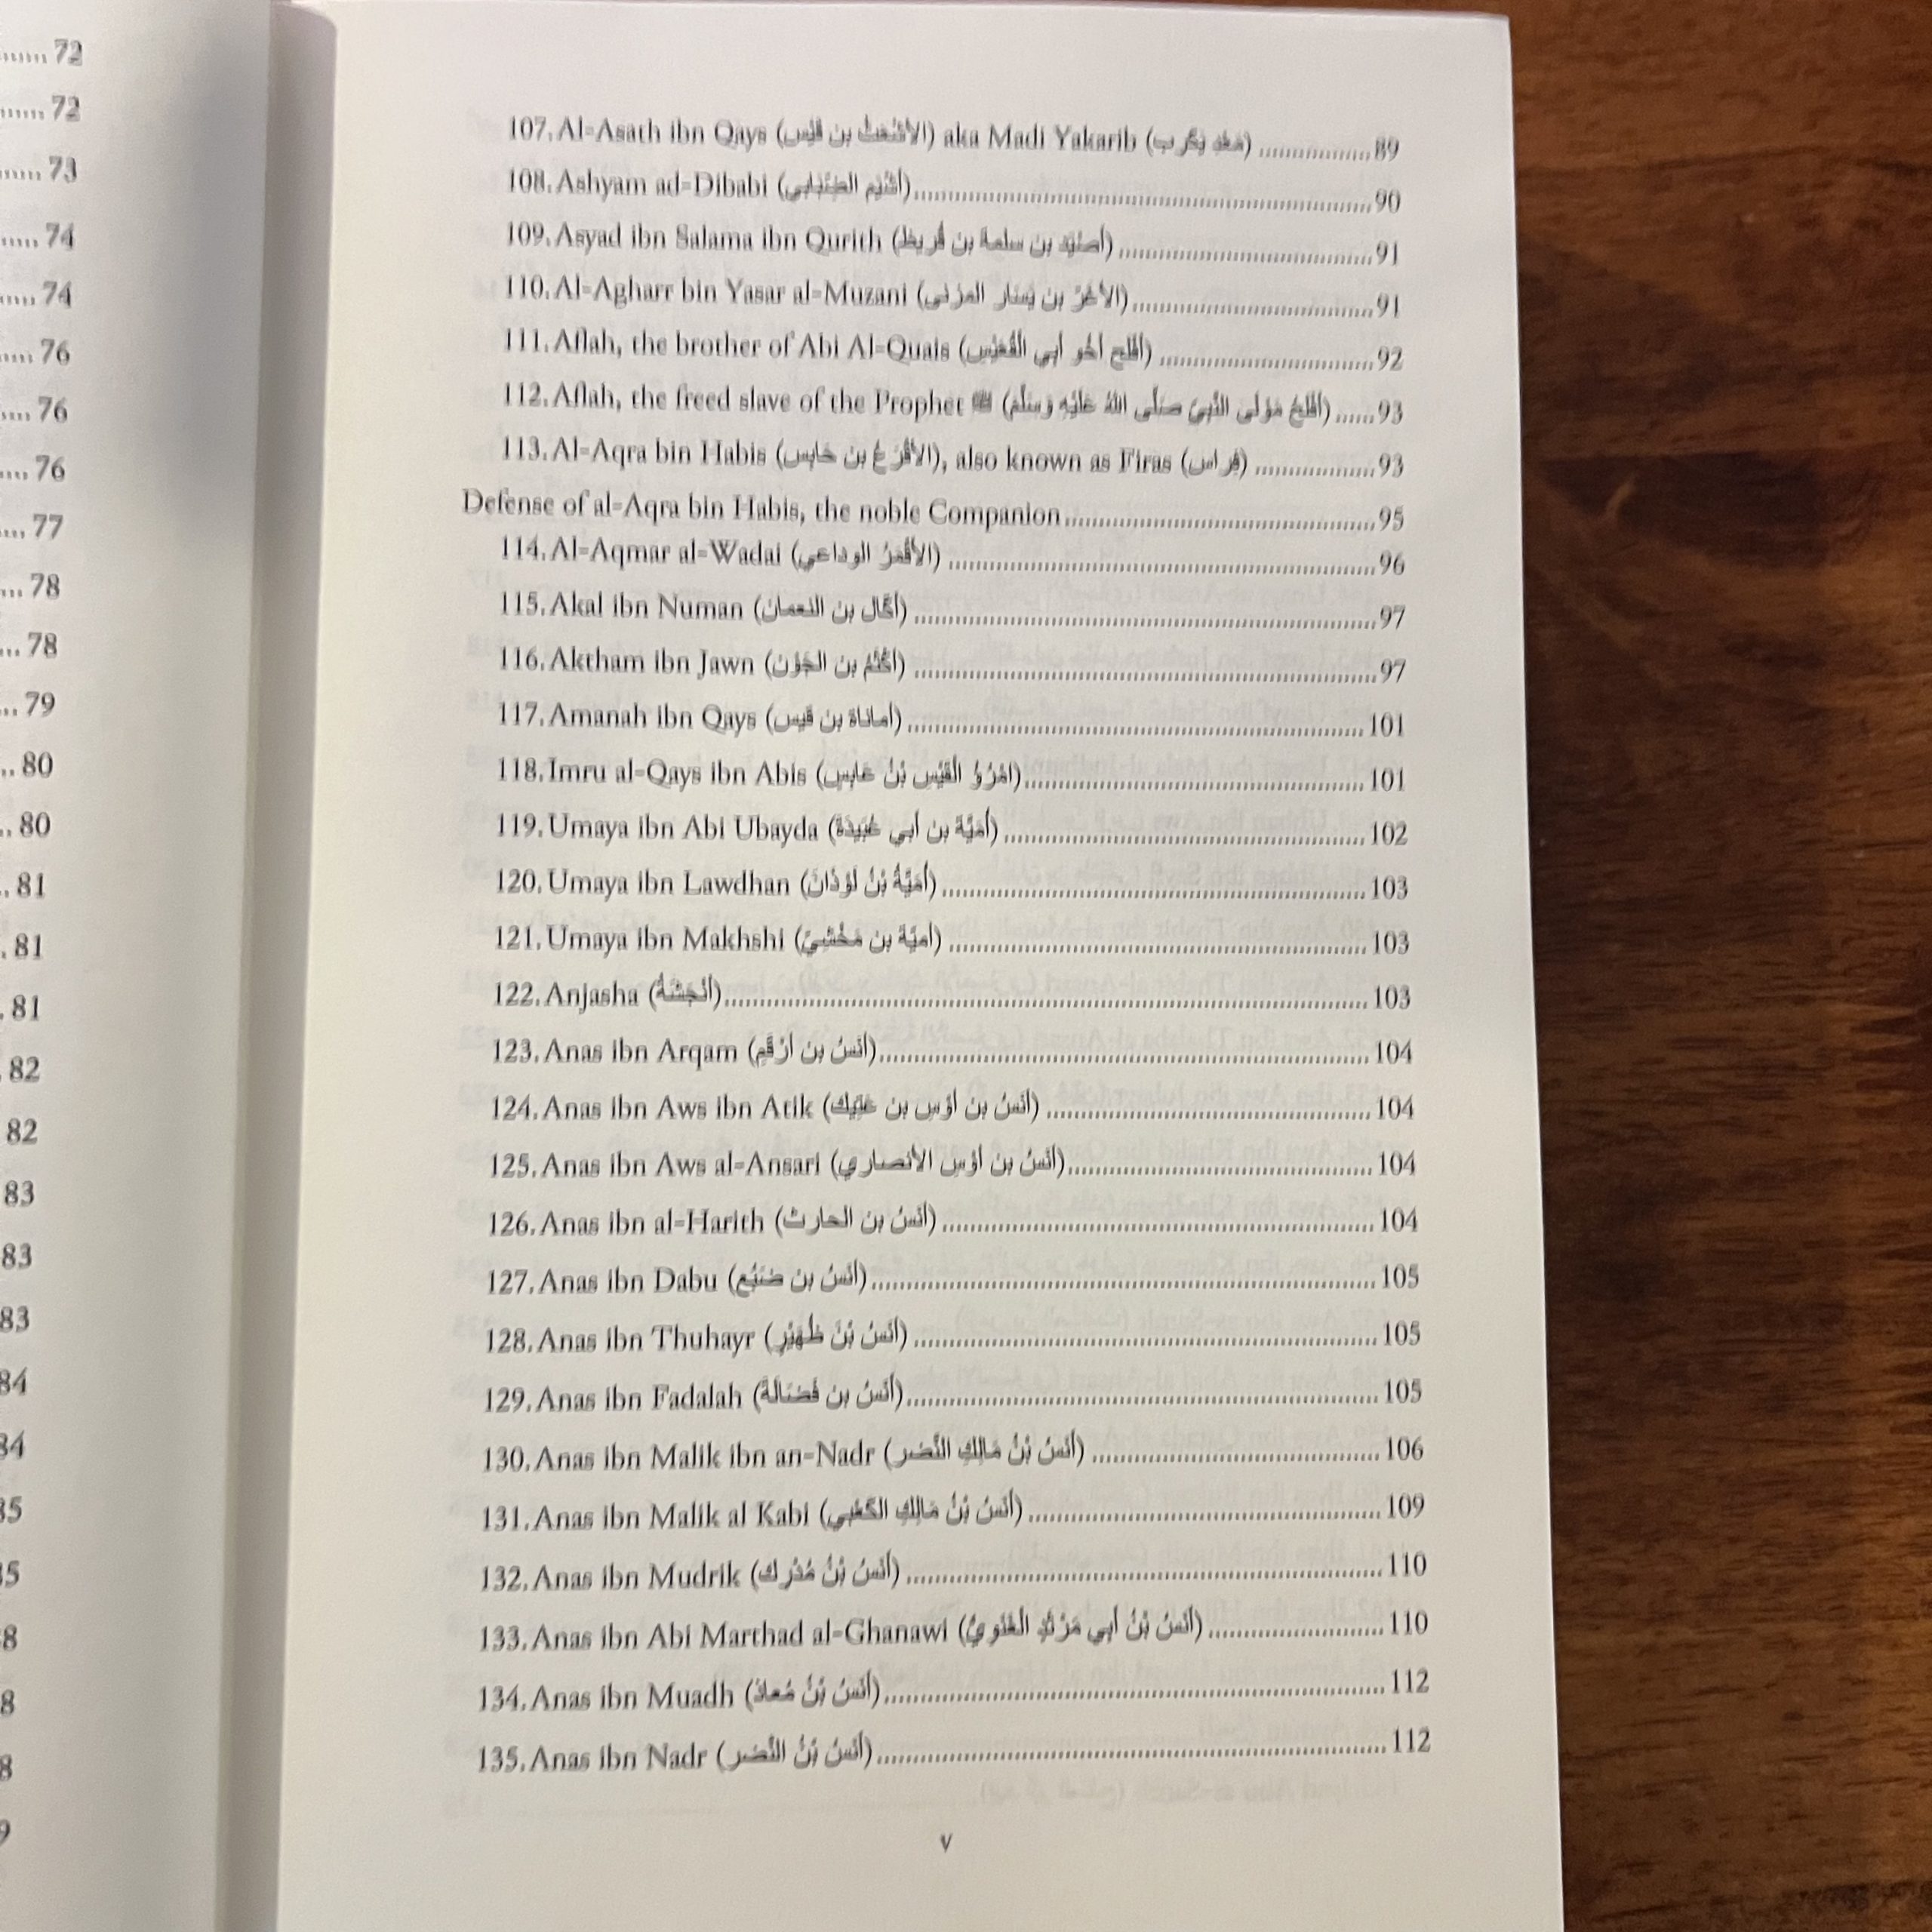 ..... 72
..... 72
..... 73
..... 74
..... 74
..... 76
..... 76
.... 76
.... 77
.... 78
... 78
... 79
.. 80
.. 80
.. 81
. 81
. 81
. 82
82
83
83
83
84
84
35
35
8
8
8
9
107. Al-Asath ibn Qays (الأشعث بن قيس) aka Madi Yakarib (معد يكرب) ................ 89
108. Ashyam ad-Dibabi (أشيم الضبابي) ................ 90
109. Asyad ibn Salama ibn Qurith (أصيد بن سلمة بن قريظ) ................ 91
110. Al-Agharr bin Yasar al-Muzani (الأغر بن يسار المزني) ................ 91
111. Aflah, the brother of Abi Al-Quais (أفلح أخو أبي القعيس) ................ 92
112. Aflah, the freed slave of the Prophet ﷺ (أفلح مولى النبي صلى الله عليه وسلم) ...... 93
113. Al-Aqra bin Habis (الأقرع بن حابس), also known as Firas (فراس) ................ 93
Defense of al-Aqra bin Habis, the noble Companion ................ 95
114. Al-Aqmar al-Wadai (الأقمر الوداعي) ................ 96
115. Akal ibn Numan (أكال بن النعمان) ................ 97
116. Aktham ibn Jawn (أكثم بن الجون) ................ 97
117. Amanah ibn Qays (أماناة بن قيس) ................ 101
118. Imru al-Qays ibn Abis (امرؤ القيس بن عابس) ................ 101
119. Umaya ibn Abi Ubayda (أمية بن أبي عبيدة) ................ 102
120. Umaya ibn Lawdhan (أمية بن لوذان) ................ 103
121. Umaya ibn Makhshi (أمية بن مخشي) ................ 103
122. Anjasha (أنجشة) ................ 103
123. Anas ibn Arqam (أنس بن أرقم) ................ 104
124. Anas ibn Aws ibn Atik (أنس بن أوس بن عتيك) ................ 104
125. Anas ibn Aws al-Ansari (أنس بن أوس الأنصاري) ................ 104
126. Anas ibn al-Harith (أنس بن الحارث) ................ 104
127. Anas ibn Dabu (أنس بن ضبع) ................ 105
128. Anas ibn Thuhayr (أنس بن ظهير) ................ 105
129. Anas ibn Fadalah (أنس بن فضالة) ................ 105
130. Anas ibn Malik ibn an-Nadr (أنس بن مالك النضر) ................ 106
131. Anas ibn Malik al Kabi (أنس بن مالك الكعبي) ................ 109
132. Anas ibn Mudrik (أنس بن مدرك) ................ 110
133. Anas ibn Abi Marthad al-Ghanawi (أنس بن أبي مرثد الغنوي) ................ 110
134. Anas ibn Muadh (أنس بن معاذ) ................ 112
135. Anas ibn Nadr (أنس بن النضر) ................ 112
v